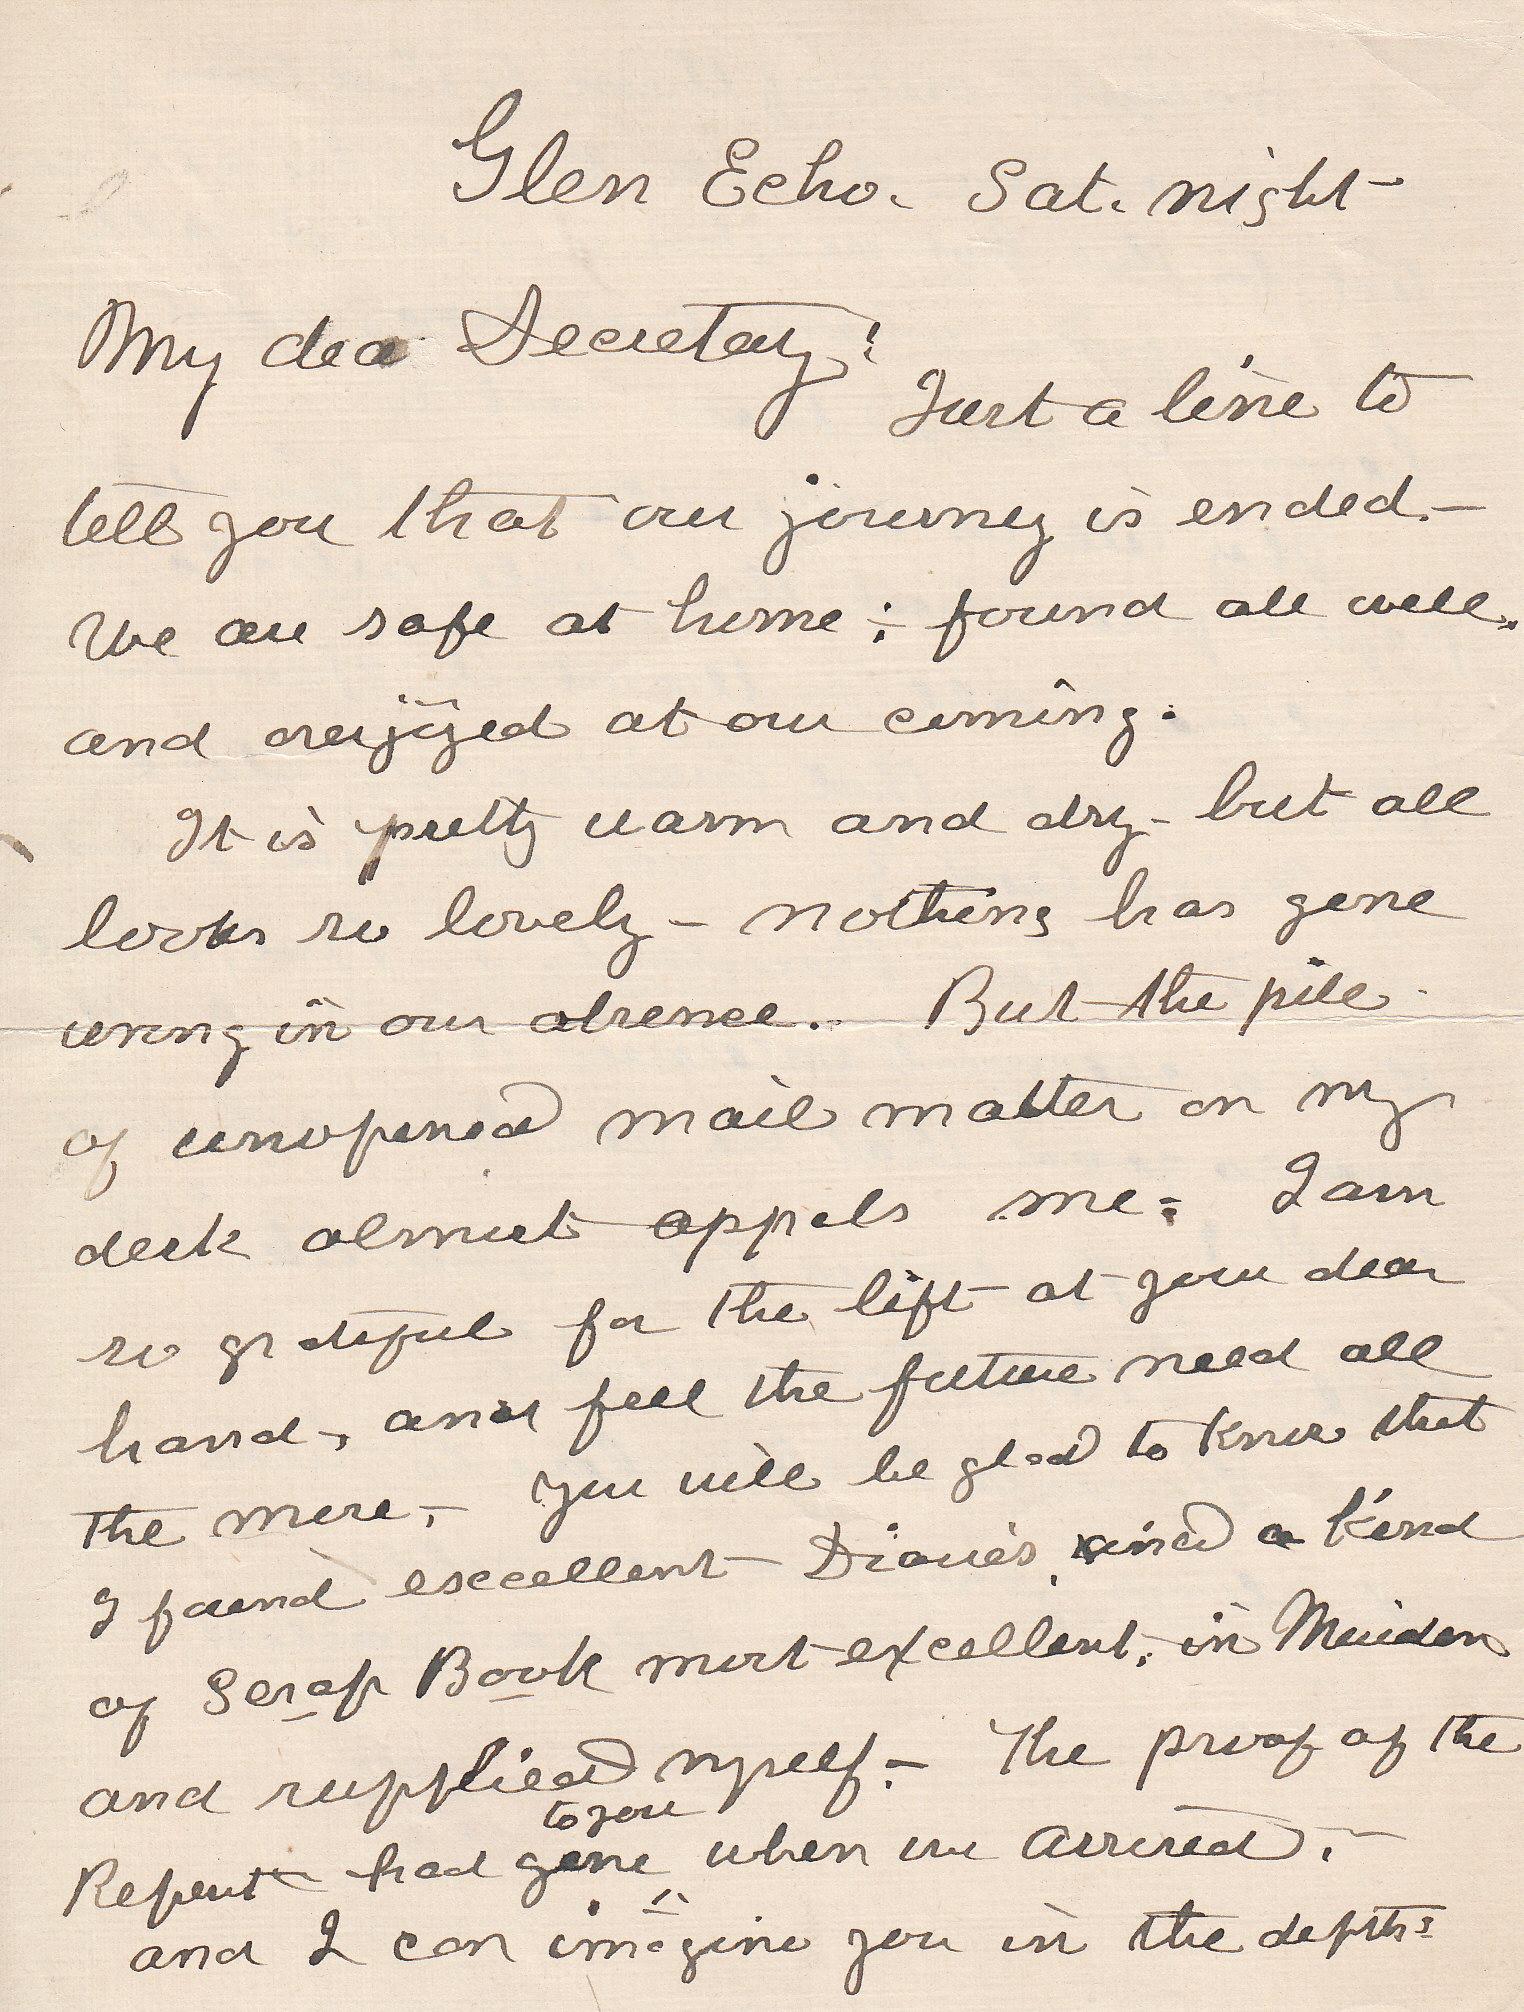 Glen Echo. Sat. night
My dear Secretary!
Just a line to
tell you that our journey is ended. -
We are safe at home; found all well.
and overjoyed at our coming.
It is pretty warm and dry - but all
looks so lovely - nothing has gone
wrong in our absence. But the pile
of unopened mail matter on my
desk almost appals me. I am
so grateful for the lift at your dear
hand, and feel the future need all
the more. - You will be glad to know that
I found excellent Diaries, and a kind
of Scrap Book most excellent, in Meriden
and supplied myself. - The proof of the
to you
Report had gone when we arrived. -
and I can imagine you in the depths